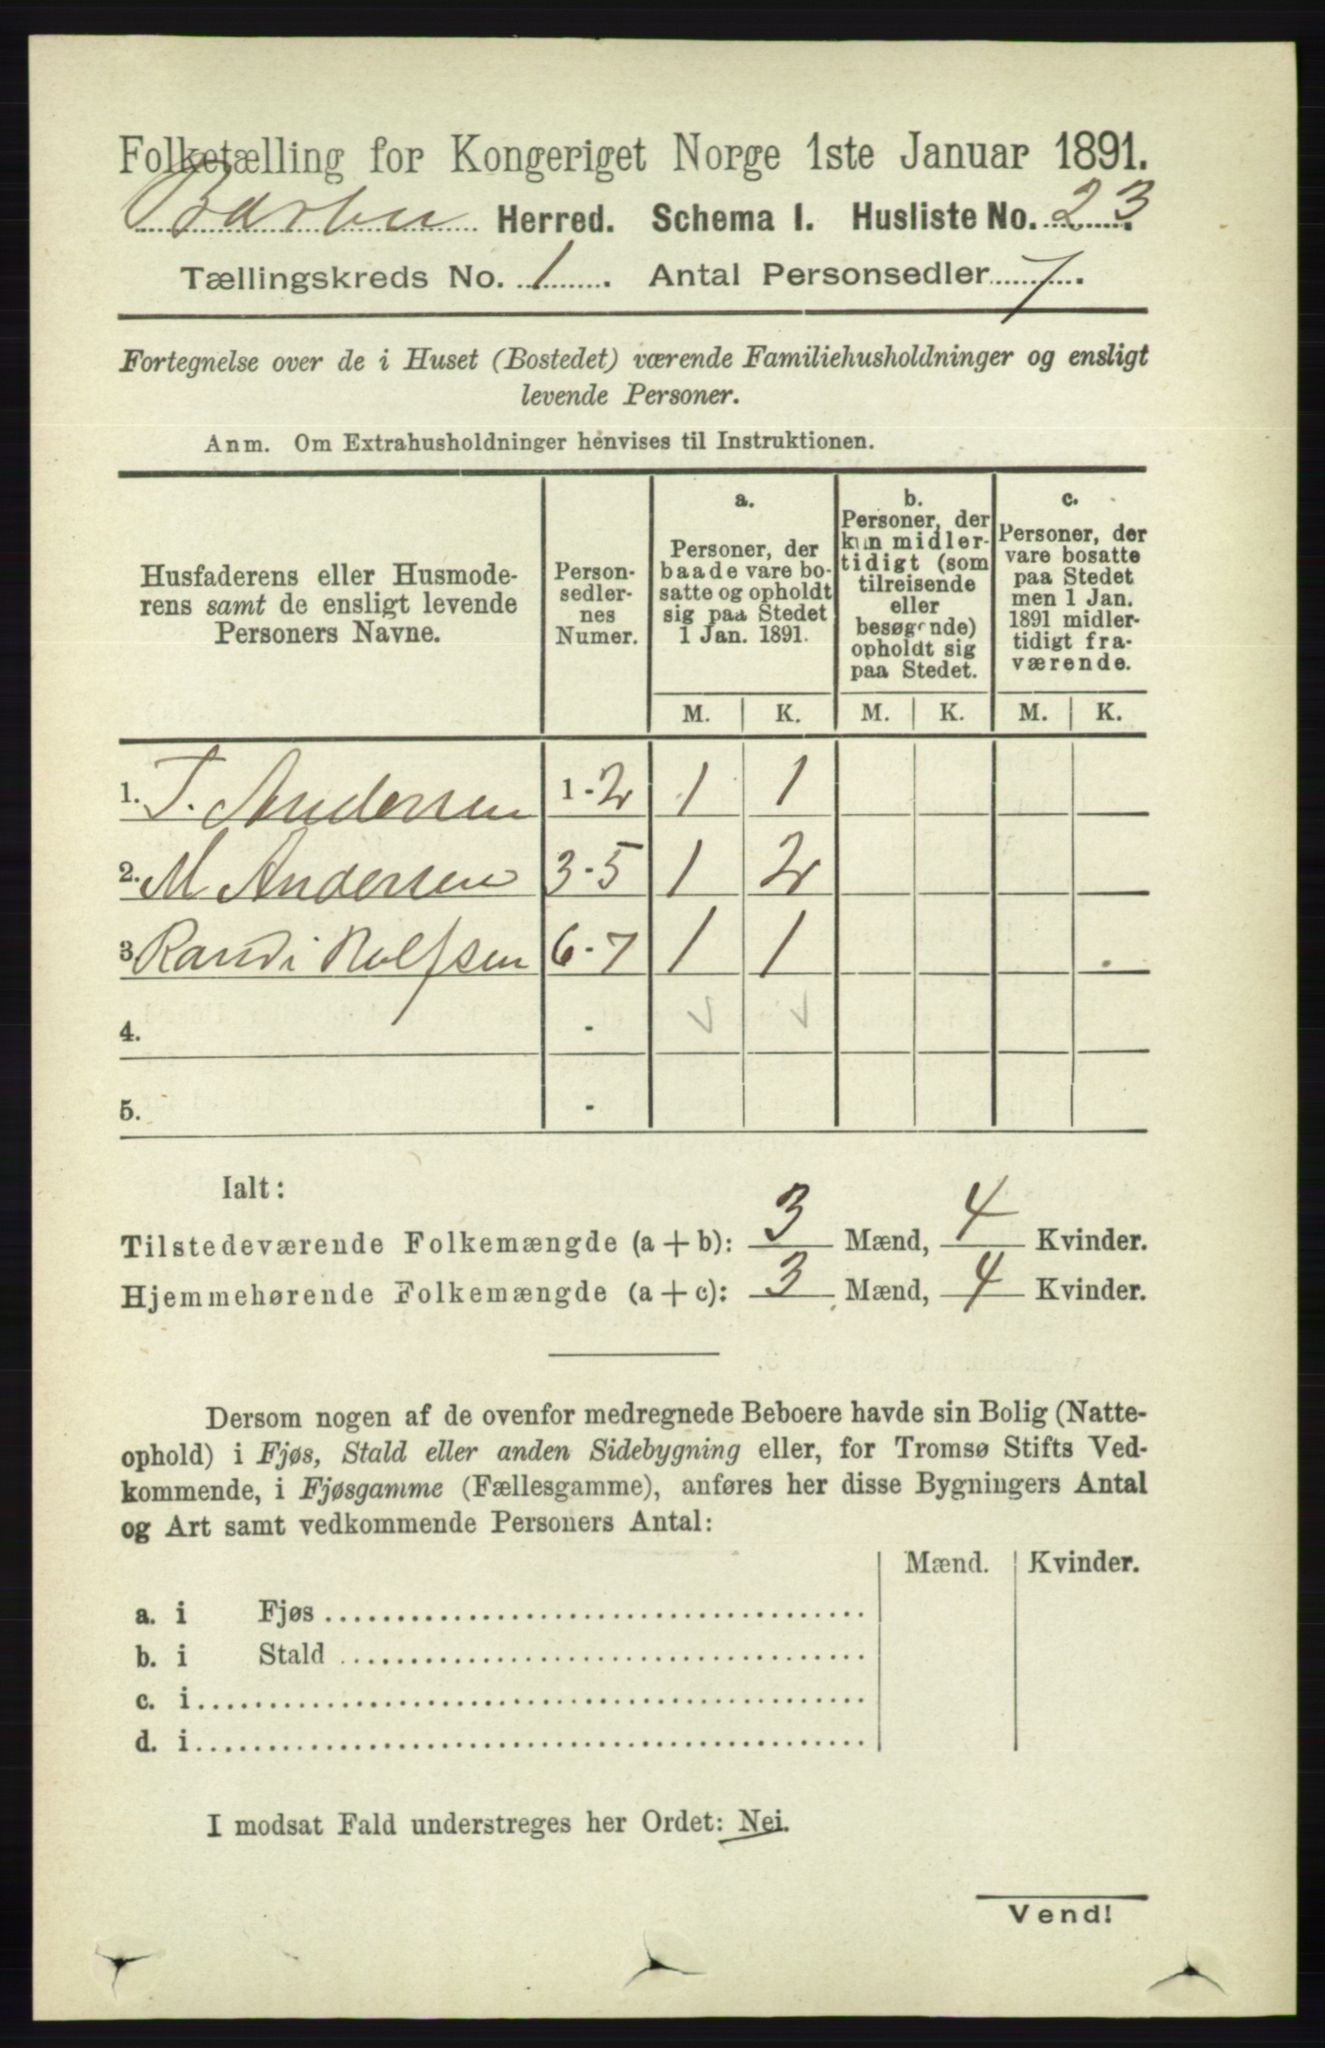 Folketælling for Kongeriget Norge 1ste Januar 1891.
Barbu Herred. Schema I. Husliste No. 23.
Tællingskreds No. 1. Antal Personsedler 7.
Fortegnelse over de i Huset (Bostedet) værende Familiehusholdninger og ensligt
levende Personer.
Anm. Om Extrahusholdninger henvises til Instruktionen.
Husfaderens eller Husmode-
rens samt de ensligt levende
Personers Navne.
Person-
sedler-
nes
Numer.
a.
Personer, der
baade vare bo-
satte og opholdt
sig paa Stedet
1 Jan. 1891.
b.
Personer, der
kun midler-
tidigt (som
tilreisende
eller
besøgende)
opholdt sig
paa Stedet.
c.
Personer, der
vare bosatte
paa Stedet
men 1 Jan.
1891 midler-
tidigt fra-
værende.
M. K. M. K. M. K.
1. T. Andersen 1-2 1 1
2. M Andersen 3-5 1 2
3 Randi Rolfsen 6-7 1 1
4. -
5. -
Ialt:
Tilstedeværende Folkemængde (a + b): 3 Mænd, 4 Kvinder.
Hjemmehørende Folkemængde (a + c): 3 Mænd, 4 Kvinder.
Dersom nogen af de ovenfor medregnede Beboere havde sin Bolig (Natte-
ophold) i Fjøs, Stald eller anden Sidebygning eller, for Tromsø Stifts Ved-
kommende, i Fjøsgamme (Fællesgamme), anføres her disse Bygningers Antal
og Art samt vedkommende Personers Antal:
Mænd. Kvinder.
a. i Fjøs
b. i Stald
c. i
d. i
I modsat Fald understreges her Ordet: Nei.
Vend!